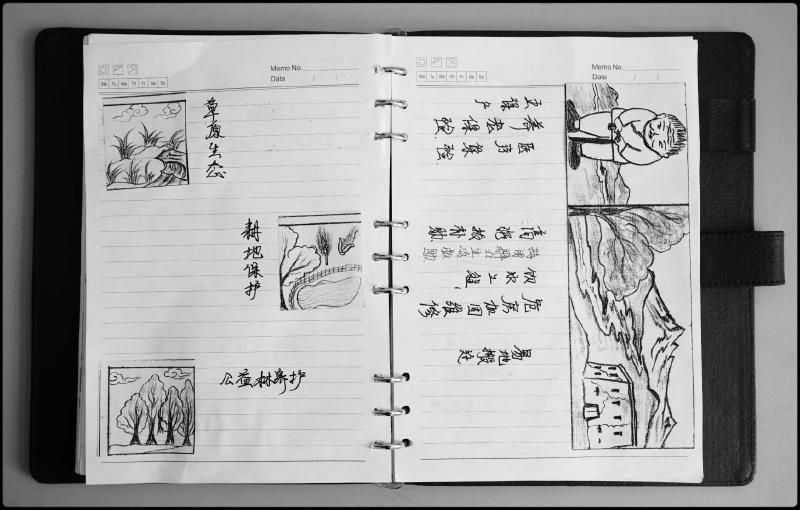 Memo No.
Mo Tu We Th Fr Sa Su
Date / /
草原生态
耕地保护
公益林养护
Memo No.
Mo Tu We Th Fr Sa Su
Date / /
五保户
养老保险
医疗保险
饮水工程
危房加固维修
易地搬迁